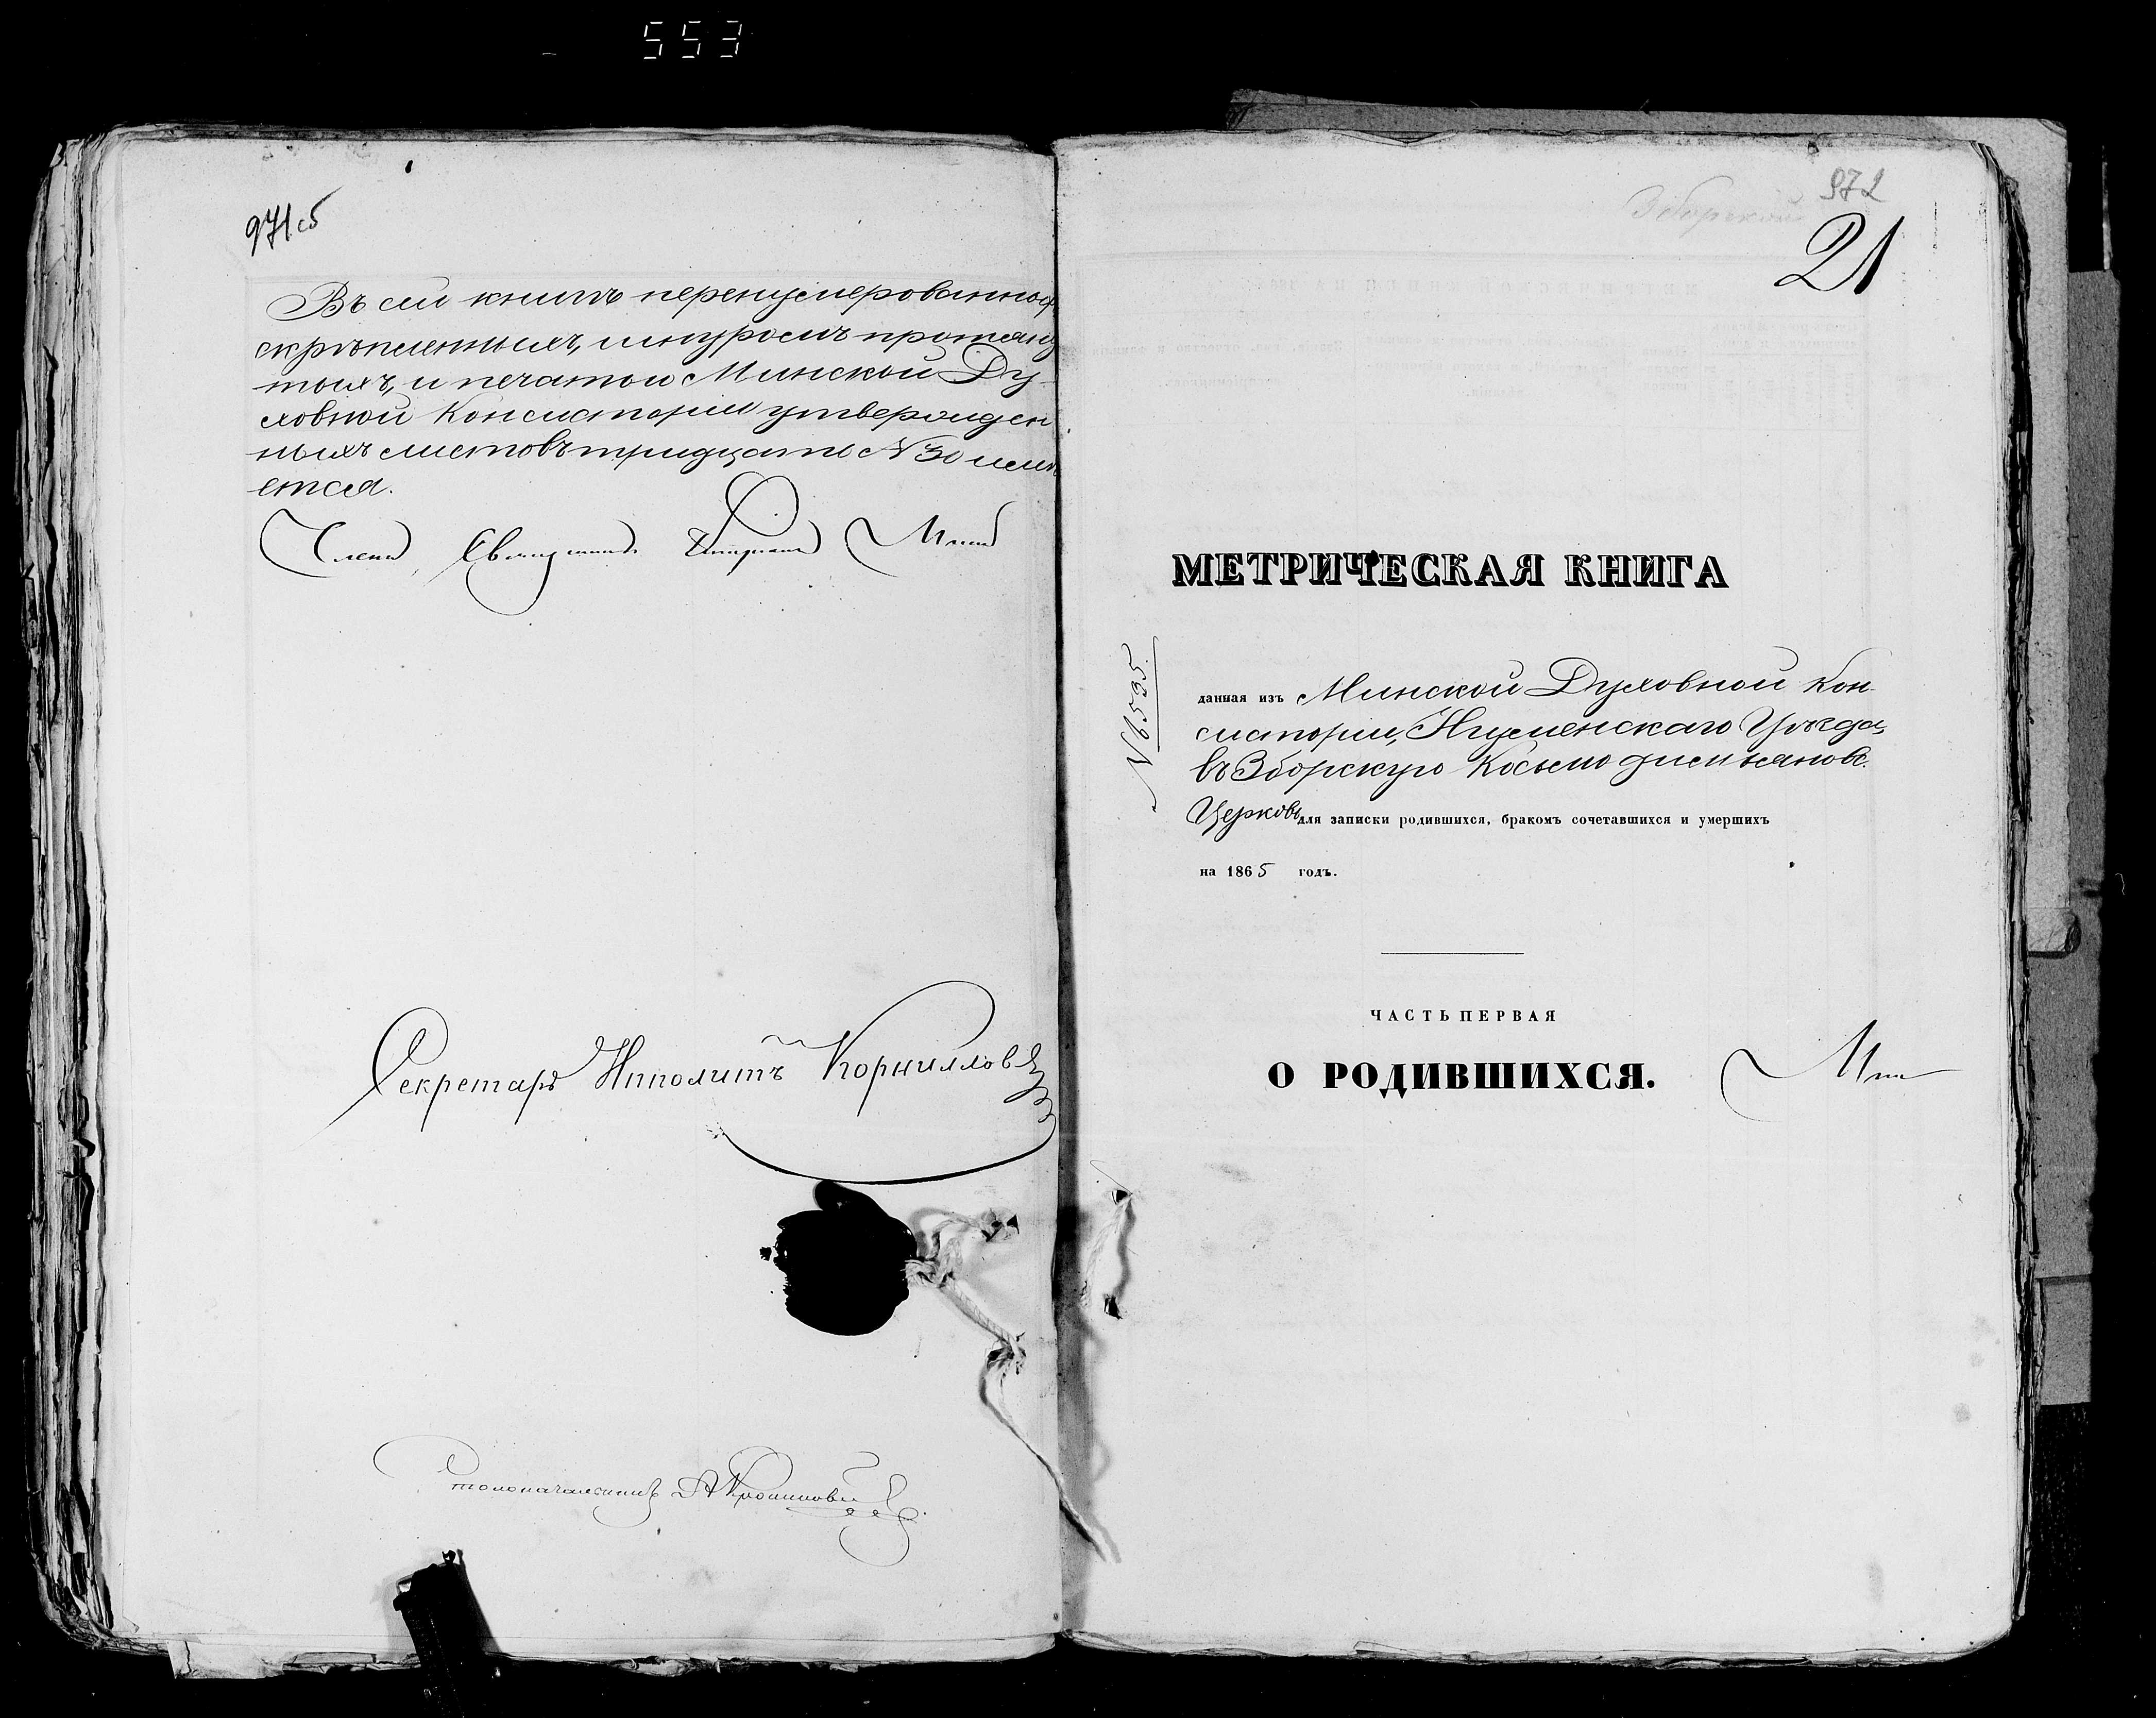 553
971 об
Въ сей книгѣ перенумерованно
скрѣпленныхъ, шнуромъ протяну
тыхъ, и печатью Минской Ду-
ховной Консисторіи утвержден
ныхъ листовъ тридцать № 30 имѣ
ется.
Членъ, Священникъ
Секретарь Ипполитъ Корниллов
Столоначальникъ
972
Зборской
21
МЕТРИЧЕСКАЯ КНИГА
№ 6535.
данная изъ Минской Духовной Кон
систоріи, Игуменскаго Уѣзда,
въ Зборскую Косьмо Диміановс.
Церковь для записки родившихся, бракомъ сочетавшихся и умершихъ
на 1865 годъ.
ЧАСТЬ ПЕРВАЯ
О РОДИВШИХСЯ.